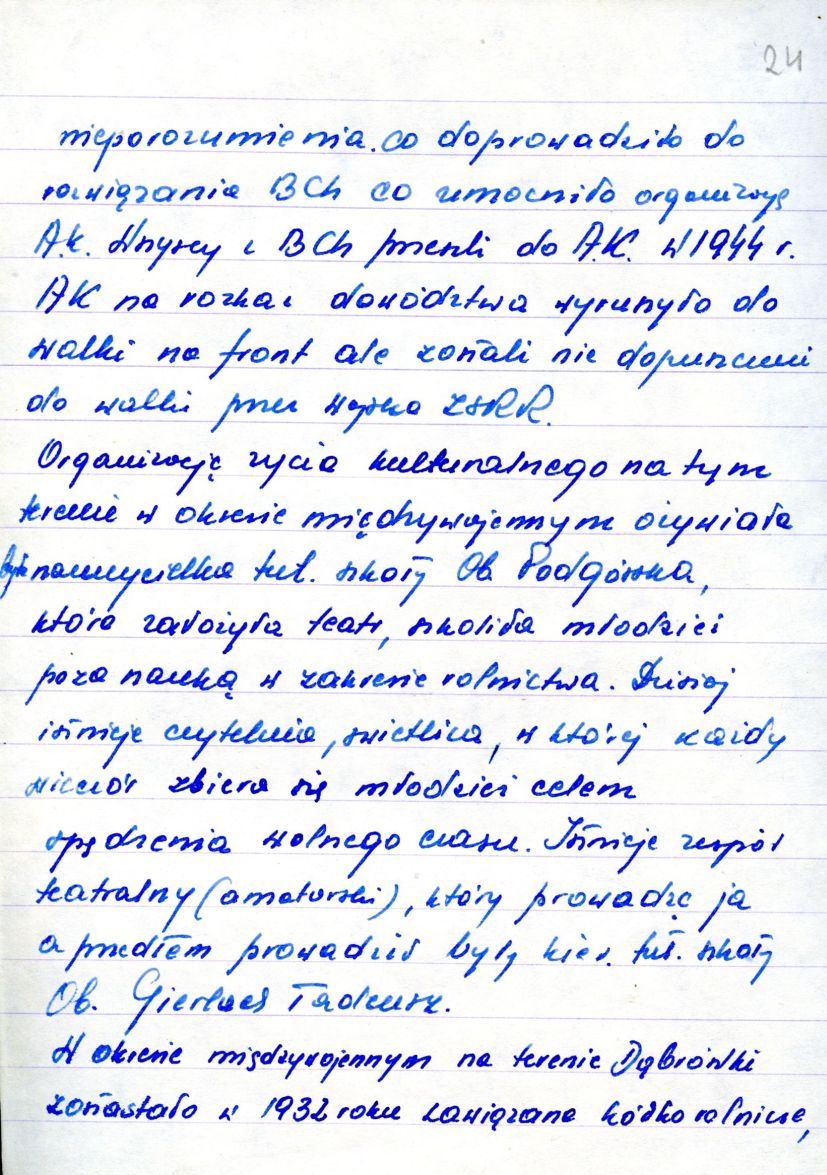 24
nieporozumienia. co doprowadziło do
rozwiązania BCh co umocniło organizację
A.k. Wszyscy z BCh przeszli do A.K. W 1944 r.
AK na rozkaz dowództwa wyruszyło do
walki na front ale zostali nie dopuszczeni
do walki przez wojska ZSRR.
Organizację życia kulturalnego na tym
terenie w okresie międzywojennym ożywiała
była nauczycielka tut. szkoły Ob. Podgórska,
która założyła teatr, szkoliła młodzież
poza nauką w zakresie rolnictwa. Dzisiaj
istnieje czytelnia, świetlica, w której każdy
wieczór zbiera się młodzież celem
spędzenia wolnego czasu. Istnieje zespół
teatralny (amatorski), który prowadzę ja
a przedtem prowadził były kier. tut. szkoły
Ob. Gierlach Tadeusz.
W okresie międzywojennym na terenie Dąbrówki
zostało w 1932 roku zawiązane kółko rolnicze,